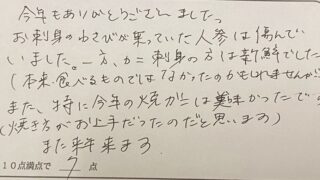 今年もありがとうございました。
お刺身のわさびが乗っていた人参は傷んで
いました。一方、カニ刺身の方は新鮮でした
(本来食べるものではなかったのかもしれませんが)
また、特に今年の焼ガニは美味かったで
(焼き方がお上手だったのだと思います)
また来年来ます
10点満点で 7 点